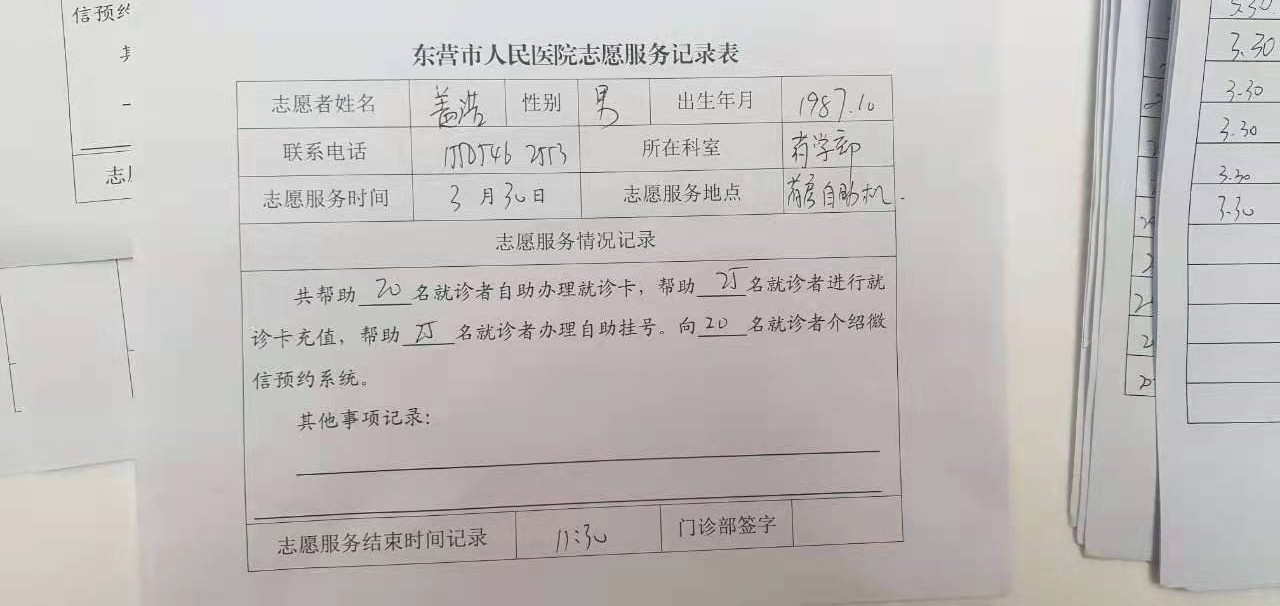 信预约
其
一
志
东营市人民医院志愿服务记录表
志愿者姓名 盖浩 性别 男 出生年月 1987.10
联系电话 15505462553 所在科室 药学部
志愿服务时间 3月30日 志愿服务地点 自助机.
志愿服务情况记录
共帮助 20 名就诊者自助办理就诊卡，帮助 25 名就诊者进行就
诊卡充值，帮助 25 名就诊者办理自助挂号。向 20 名就诊者介绍微
信预约系统。
其他事项记录：
志愿服务结束时间记录 11:30 门诊部签字
3.30
3.30
3.30
3.30
3.30
3.30